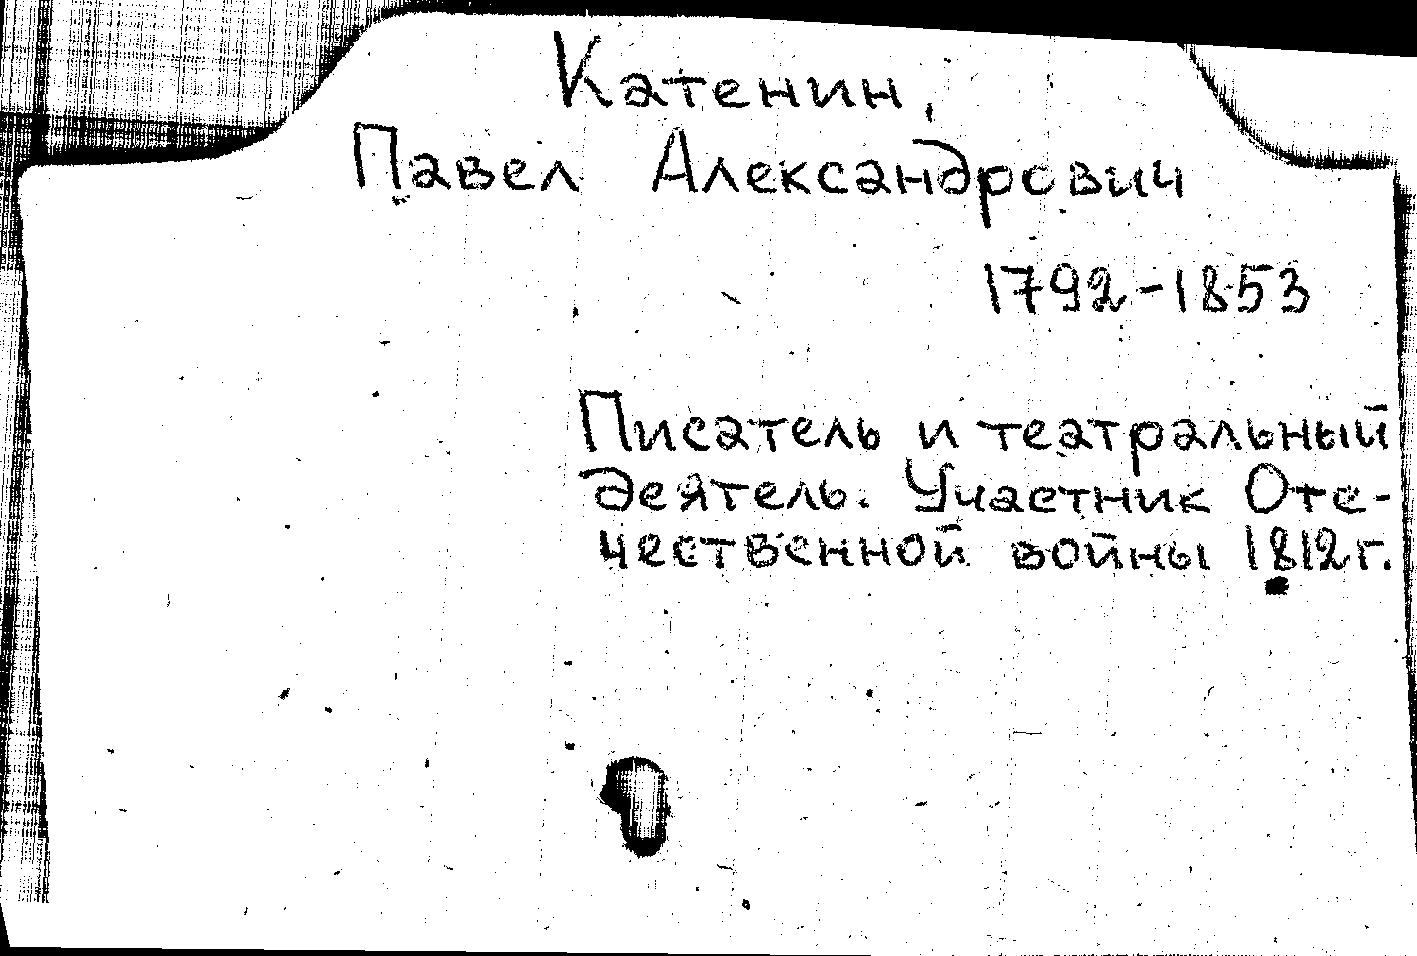 Катенин,
Павел Александрович
1792-1853
Писатель и театральный
деятель. Участник Оте-
чественной войны 1812г.